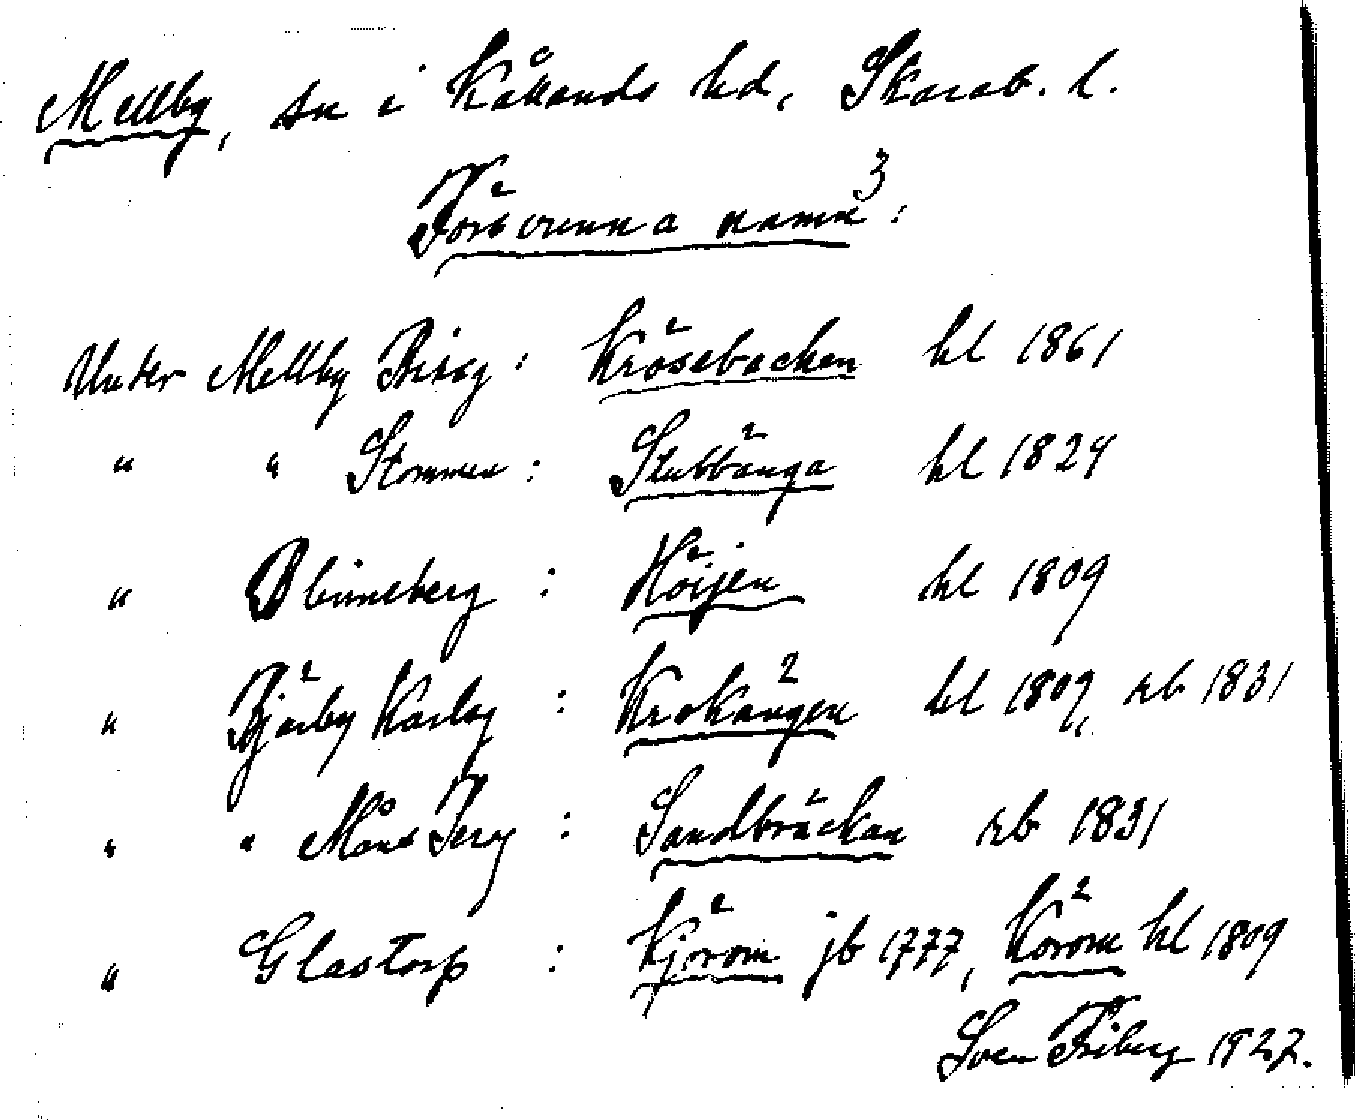 Mellby, sn i Kållands hd, Skarab. l.
Försvunna namn 3:
Under Mellby Börsg: Krösebacken hl 1861
" " Stommen: Stubbänga hl 1824
" Blinneberg: Höijen hl 1809
" Bjärby Karlsg: Krokängen hl 1809, rb 1831
" " Måns Jerg: Sandbräckan rb 1831
" Glastorp: Kjörom jb 1777, Körom hl 1809
Sven Friberg 1927.